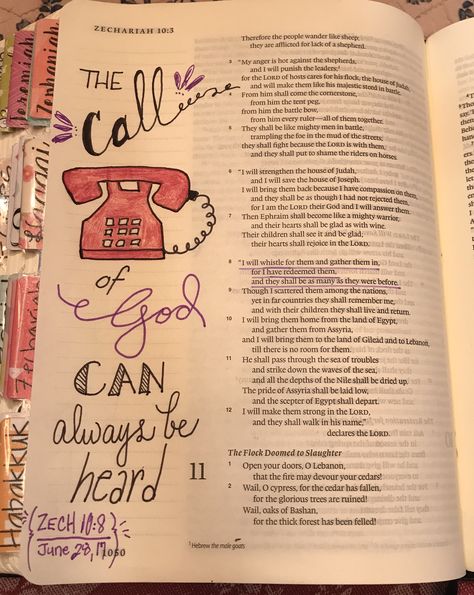 ZECHARIAH 10:3
THE
Call
of
God
CAN
always be
heard
ZECH 10:8
June 28, 17
1050
Jeremiah
Zephaniah
Haggai
Zechariah
Habakkuk
Therefore the people wander like sheep;
they are afflicted for lack of a shepherd.
3 "My anger is hot against the shepherds,
and I will punish the leaders;¹
for the LORD of hosts cares for his flock, the house of Judah,
and will make them like his majestic steed in battle.
4 From him shall come the cornerstone,
from him the tent peg,
from him the battle bow,
from him every ruler—all of them together.
5 They shall be like mighty men in battle,
trampling the foe in the mud of the streets;
they shall fight because the LORD is with them,
and they shall put to shame the riders on horses.
6 "I will strengthen the house of Judah,
and I will save the house of Joseph.
I will bring them back because I have compassion on them,
and they shall be as though I had not rejected them,
for I am the LORD their God and I will answer them.
7 Then Ephraim shall become like a mighty warrior,
and their hearts shall be glad as with wine.
Their children shall see it and be glad;
their hearts shall rejoice in the LORD.
8 "I will whistle for them and gather them in,
for I have redeemed them,
and they shall be as many as they were before.
9 Though I scattered them among the nations,
yet in far countries they shall remember me,
and with their children they shall live and return.
10 I will bring them home from the land of Egypt,
and gather them from Assyria,
and I will bring them to the land of Gilead and to Lebanon,
till there is no room for them.
11 He shall pass through the sea of troubles
and strike down the waves of the sea,
and all the depths of the Nile shall be dried up.
The pride of Assyria shall be laid low,
and the scepter of Egypt shall depart.
12 I will make them strong in the LORD,
and they shall walk in his name,"
declares the LORD.
The Flock Doomed to Slaughter
11
1 Open your doors, O Lebanon,
that the fire may devour your cedars!
2 Wail, O cypress, for the cedar has fallen,
for the glorious trees are ruined!
Wail, oaks of Bashan,
for the thick forest has been felled!
¹ Hebrew the male goats